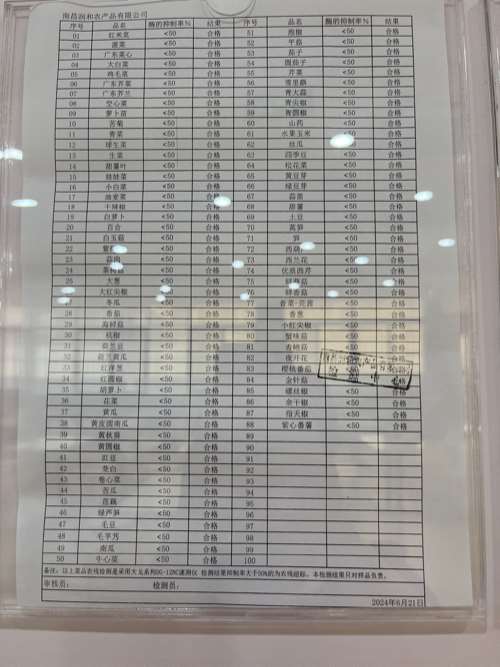 南昌润和农产品有限公司
序号 品名 酶的抑制率% 结果 序号 品名 酶的抑制率% 结果
01 红米苋 <50 合格 51 泡椒 <50 合格
02 菠菜 <50 合格 52 平菇 <50 合格
03 广东菜心 <50 合格 53 茄子 <50 合格
04 大白菜 <50 合格 54 圆茄子 <50 合格
05 鸡毛菜 <50 合格 55 芹菜 <50 合格
06 广东芥菜 <50 合格 56 雪里蕻 <50 合格
07 广东芥兰 <50 合格 57 青大蒜 <50 合格
08 空心菜 <50 合格 58 青尖椒 <50 合格
09 萝卜苗 <50 合格 59 青圆椒 <50 合格
10 苦菊 <50 合格 60 山药 <50 合格
11 青菜 <50 合格 61 水果玉米 <50 合格
12 球生菜 <50 合格 62 丝瓜 <50 合格
13 生菜 <50 合格 63 四季豆 <50 合格
14 甜薯叶 <50 合格 64 松花菜 <50 合格
15 娃娃菜 <50 合格 65 黄豆芽 <50 合格
16 小白菜 <50 合格 66 绿豆芽 <50 合格
17 油麦菜 <50 合格 67 蒜苗 <50 合格
18 干辣椒 <50 合格 68 甜薯 <50 合格
19 白萝卜 <50 合格 69 土豆 <50 合格
20 百合 <50 合格 70 莴笋 <50 合格
21 白玉菇 <50 合格 71 笋 <50 合格
22 <50 合格 72 西葫 <50 合格
23 <50 合格 73 西兰花 <50 合格
24 <50 合格 74 优质西芹 <50 合格
25 大葱 <50 合格 75 <50 合格
26 大红尖椒 <50 合格 76 鲜香菇 <50 合格
27 冬瓜 <50 合格 77 香菜-芫荽 <50 合格
28 番茄 <50 合格 78 香葱 <50 合格
29 海鲜菇 <50 合格 79 小红尖椒 <50 合格
30 杭椒 <50 合格 80 蟹味菇 <50 合格
31 荷兰豆 <50 合格 81 杏鲍菇 <50 合格
32 荷兰黄瓜 <50 合格 82 夜开花 <50
33 红洋葱 <50 合格 83 樱桃番茄 <50
34 红圆椒 <50 合格 84 金针菇 <50 合格
35 胡萝卜 <50 合格 85 螺丝椒 <50 合格
36 花菜 <50 合格 86 金干椒 <50 合格
37 黄瓜 <50 合格 87 指天椒 <50 合格
38 黄皮圆南瓜 <50 合格 88 紫心番薯 <50 合格
39 黄秋葵 <50 合格 89
40 黄圆椒 <50 合格 90
41 豇豆 <50 合格 91
42 茭白 <50 合格 92
43 卷心菜 <50 合格 93
44 苦瓜 <50 合格 94
45 莲藕 <50 合格 95
46 绿芦笋 <50 合格 96
47 毛豆 <50 合格 97
48 毛芋艿 <50 合格 98
49 南瓜 <50 合格 99
50 牛心菜 <50 合格 100
备注：以上菜品农残检测是采用大龙系列DG-12NC速测仪 检测结果抑制率大于50%的为农残超标。本检测结果只对样品负责。
审核员： 检测员：
2024年6月21日